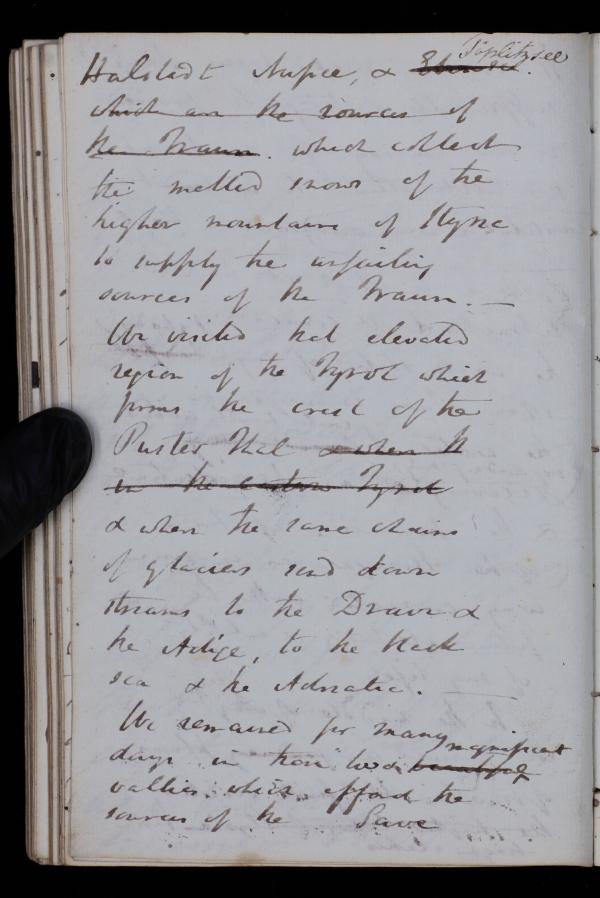 Halstadt Aufsee, & Ebensee. Töplitzsee
which are the sources of
the Traun. which collect
the melted snows of the
higher mountains of Styria
to supply the unfailing
sources of the Traun. —
We visited that elevated
region of the Tyrol which
forms the crest of the
Puster Thal & when th
in the eastern Tyrol
& where the same chains
of glaciers send down
streams to the Drave &
the Adige, to the black
sea & the Adriatic. —
We remained for many
days in those two beautiful magnificent
vallies which afford the
sources of the Save